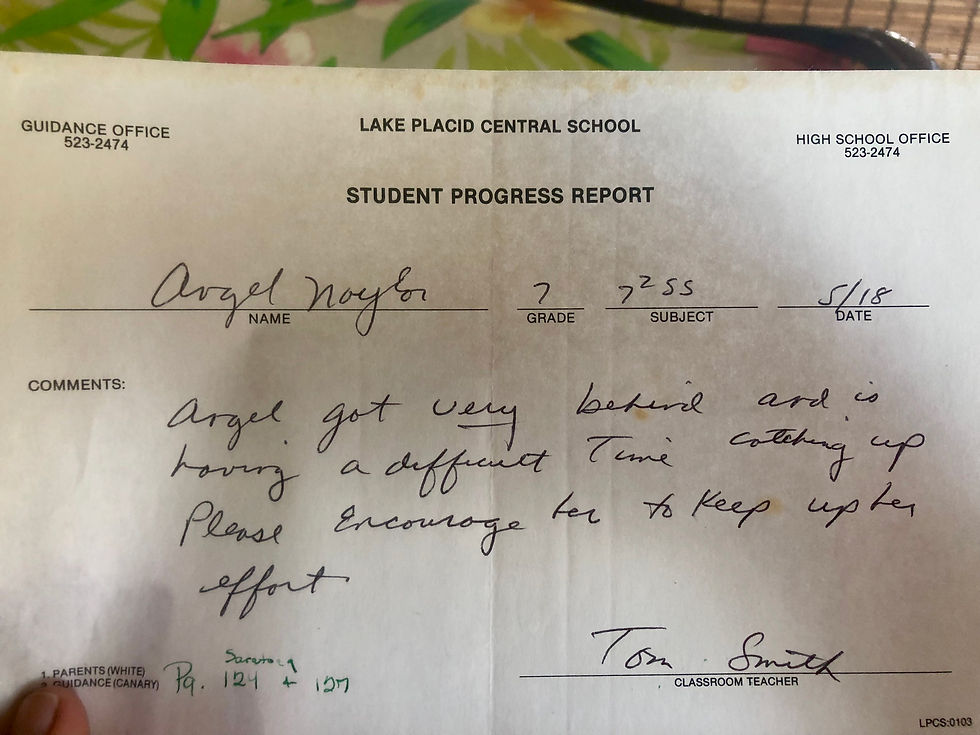 GUIDANCE OFFICE
523-2474
LAKE PLACID CENTRAL SCHOOL
HIGH SCHOOL OFFICE
523-2474
STUDENT PROGRESS REPORT
Angel Naylor 7 7² SS 5/18
NAME GRADE SUBJECT DATE
COMMENTS:
Angel got very behind and is
having a difficult Time catching up
Please Encourage her to Keep up her
effort
Tom Smith
CLASSROOM TEACHER
1. PARENTS (WHITE)
2 GUIDANCE (CANARY)
Saratoga
Pg. 124 + 127
LPCS:0103